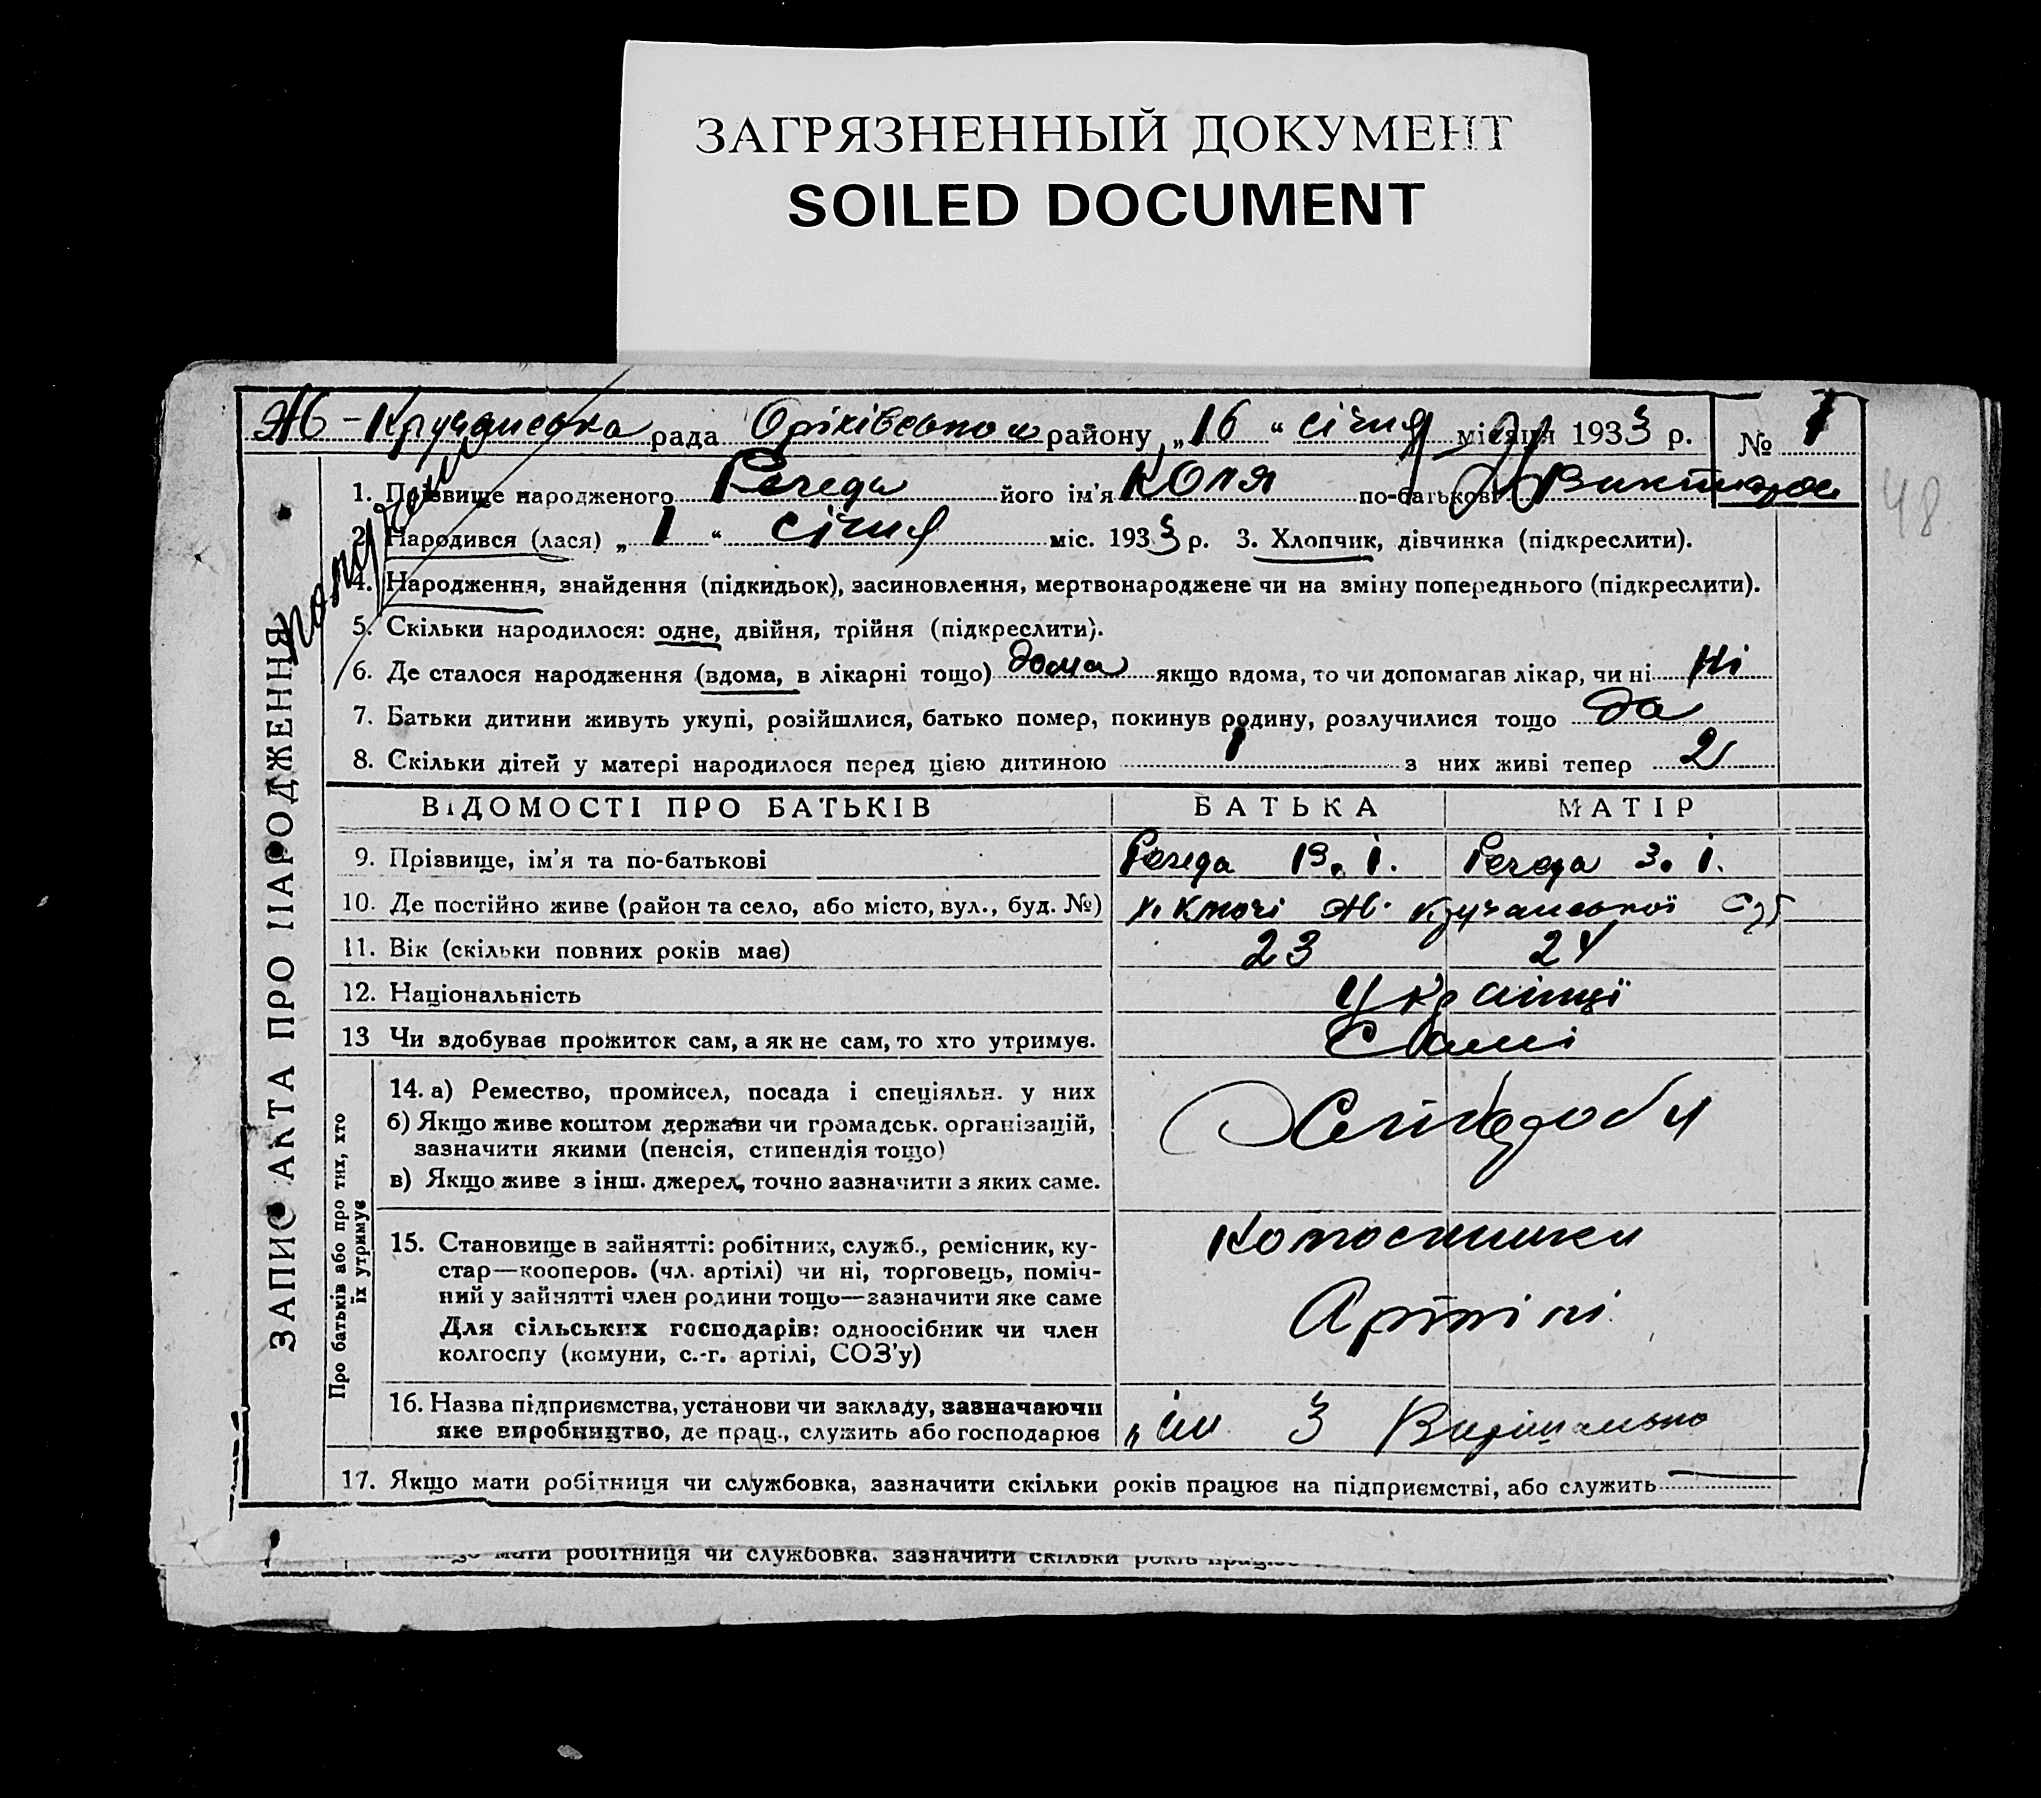 ЗАГРЯЗНЕННЫЙ ДОКУМЕНТ
SOILED DOCUMENT
рада району „16“ січня місяця 1933 р. № 1
48
1. Прізвище народженого його ім'я Коля по-батькові
2. Народився (лася) „1“ січня міс. 1933 р. 3. Хлопчик, дівчинка (підкреслити).
4. Народження, знайдення (підкидьок), засиновлення, мертвонароджене чи на зміну попереднього (підкреслити).
5. Скільки народилося: одне, двійня, трійня (підкреслити).
6. Де сталося народження (вдома, в лікарні тощо) дома якщо вдома, то чи допомагав лікар, чи ні Ні
7. Батьки дитини живуть укупі, розійшлися, батько помер, покинув родину, розлучилися тощо да
8. Скільки дітей у матері народилося перед цією дитиною 1 з них живі тепер 2
ЗАПИС АКТА ПРО НАРОДЖЕННЯ
ВІДОМОСТІ ПРО БАТЬКІВ БАТЬКА МАТІР
9. Прізвище, ім'я та по-батькові
10. Де постійно живе (район та село, або місто, вул., буд. №)
11. Вік (скільки повних років має) 23 24
12. Національність Українці
13 Чи здобуває прожиток сам, а як не сам, то хто утримує. Самі
Про батьків або про тих, хто
їх утримує
14. а) Ремество, промисел, посада і спеціяльн. у них
б) Якщо живе коштом держави чи громадськ. організацій,
зазначити якими (пенсія, стипендія тощо)
в) Якщо живе з інш. джерел, точно зазначити з яких саме.
Хлібороби
15. Становище в зайнятті: робітник, служб., ремісник, ку-
стар—кооперов. (чл. артілі) чи ні, торговець, поміч-
ний у зайнятті член родини тощо—зазначити яке саме
Для сільських господарів: одноосібник чи член
колгоспу (комуни, с.-г. артілі, СОЗ'у)
Артілі
16. Назва підприємства, установи чи закладу, зазначаючи
яке виробництво, де прац., служить або господарює
17. Якщо мати робітниця чи службовка, зазначити скільки років працює на підприємстві, або служить —
мати робітниця чи службовка, зазначити скільки років